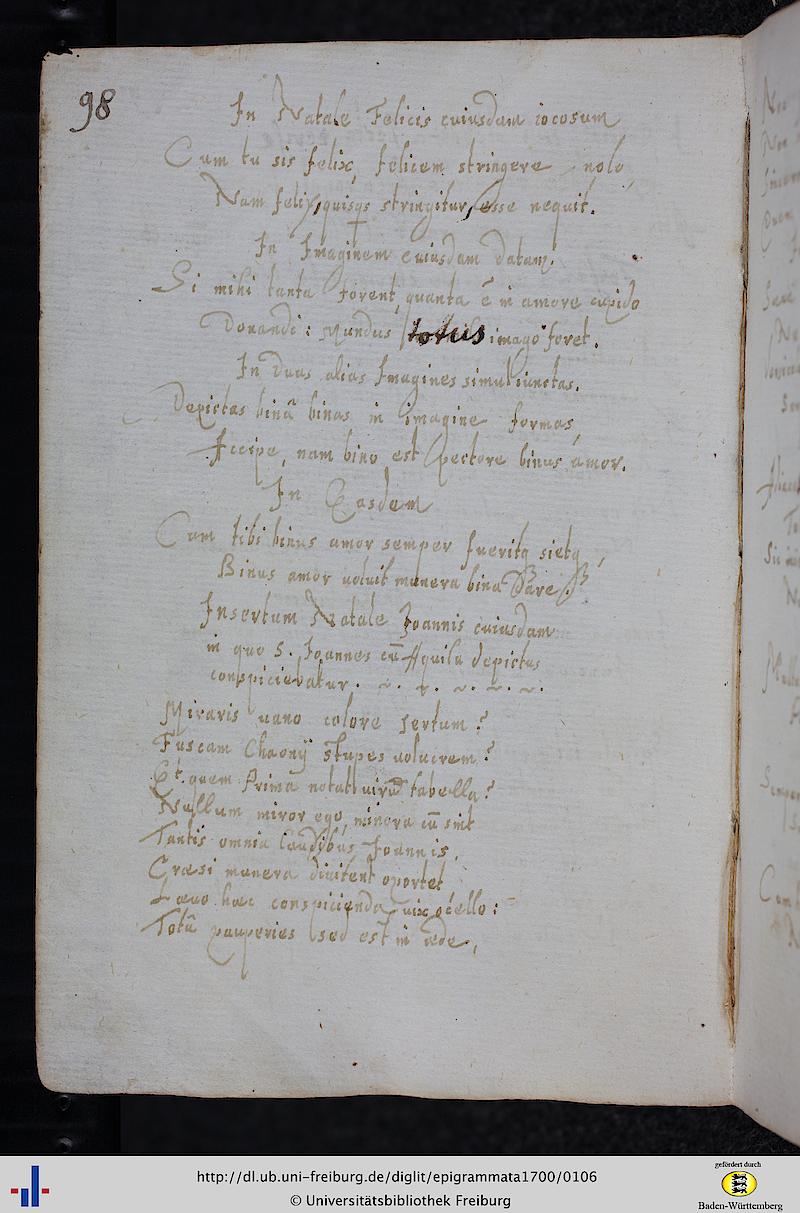 98
In Natale Felicis cuiusdam iocosum
Cum tu sis felix, felicem stringere nolo
Nam felix, quisqs stringitur, esse nequit.
In Imaginem cuiusdam datam.
Si mihi tanta forent, quanta ē in amore cupido
Donandi: Mundus totus imago foret.
In Duas alias Imagines simul iunctas.
Depictas binā binas in imagine formas,
Accipe, nam bino est pectore binus amor.
In Easdem
Cum tibi binus amor semper fueritq sietq,
Binus amor uoluit munera bina Dare.
Insertum Natale Joannis cuiusdam
in quo S. Joannes cū Aquila depictus
conspiciebatur.
Miraris uano colore sertum?
Fuscam Chaonÿ stupes uolucrem?
Et quem Prima notat uirū tabella?
Nullum miror ego, minora cū sint
Tantis omnia laudibus Joannis.
Cræsi munera diuitent oportet
Læuo hæc conspicienda uix ocello:
Totū pauperies sed est in æde,
http://dl.ub.uni-freiburg.de/diglit/epigrammata1700/0106
© Universitätsbibliothek Freiburg
gefördert durch
Baden-Württemberg